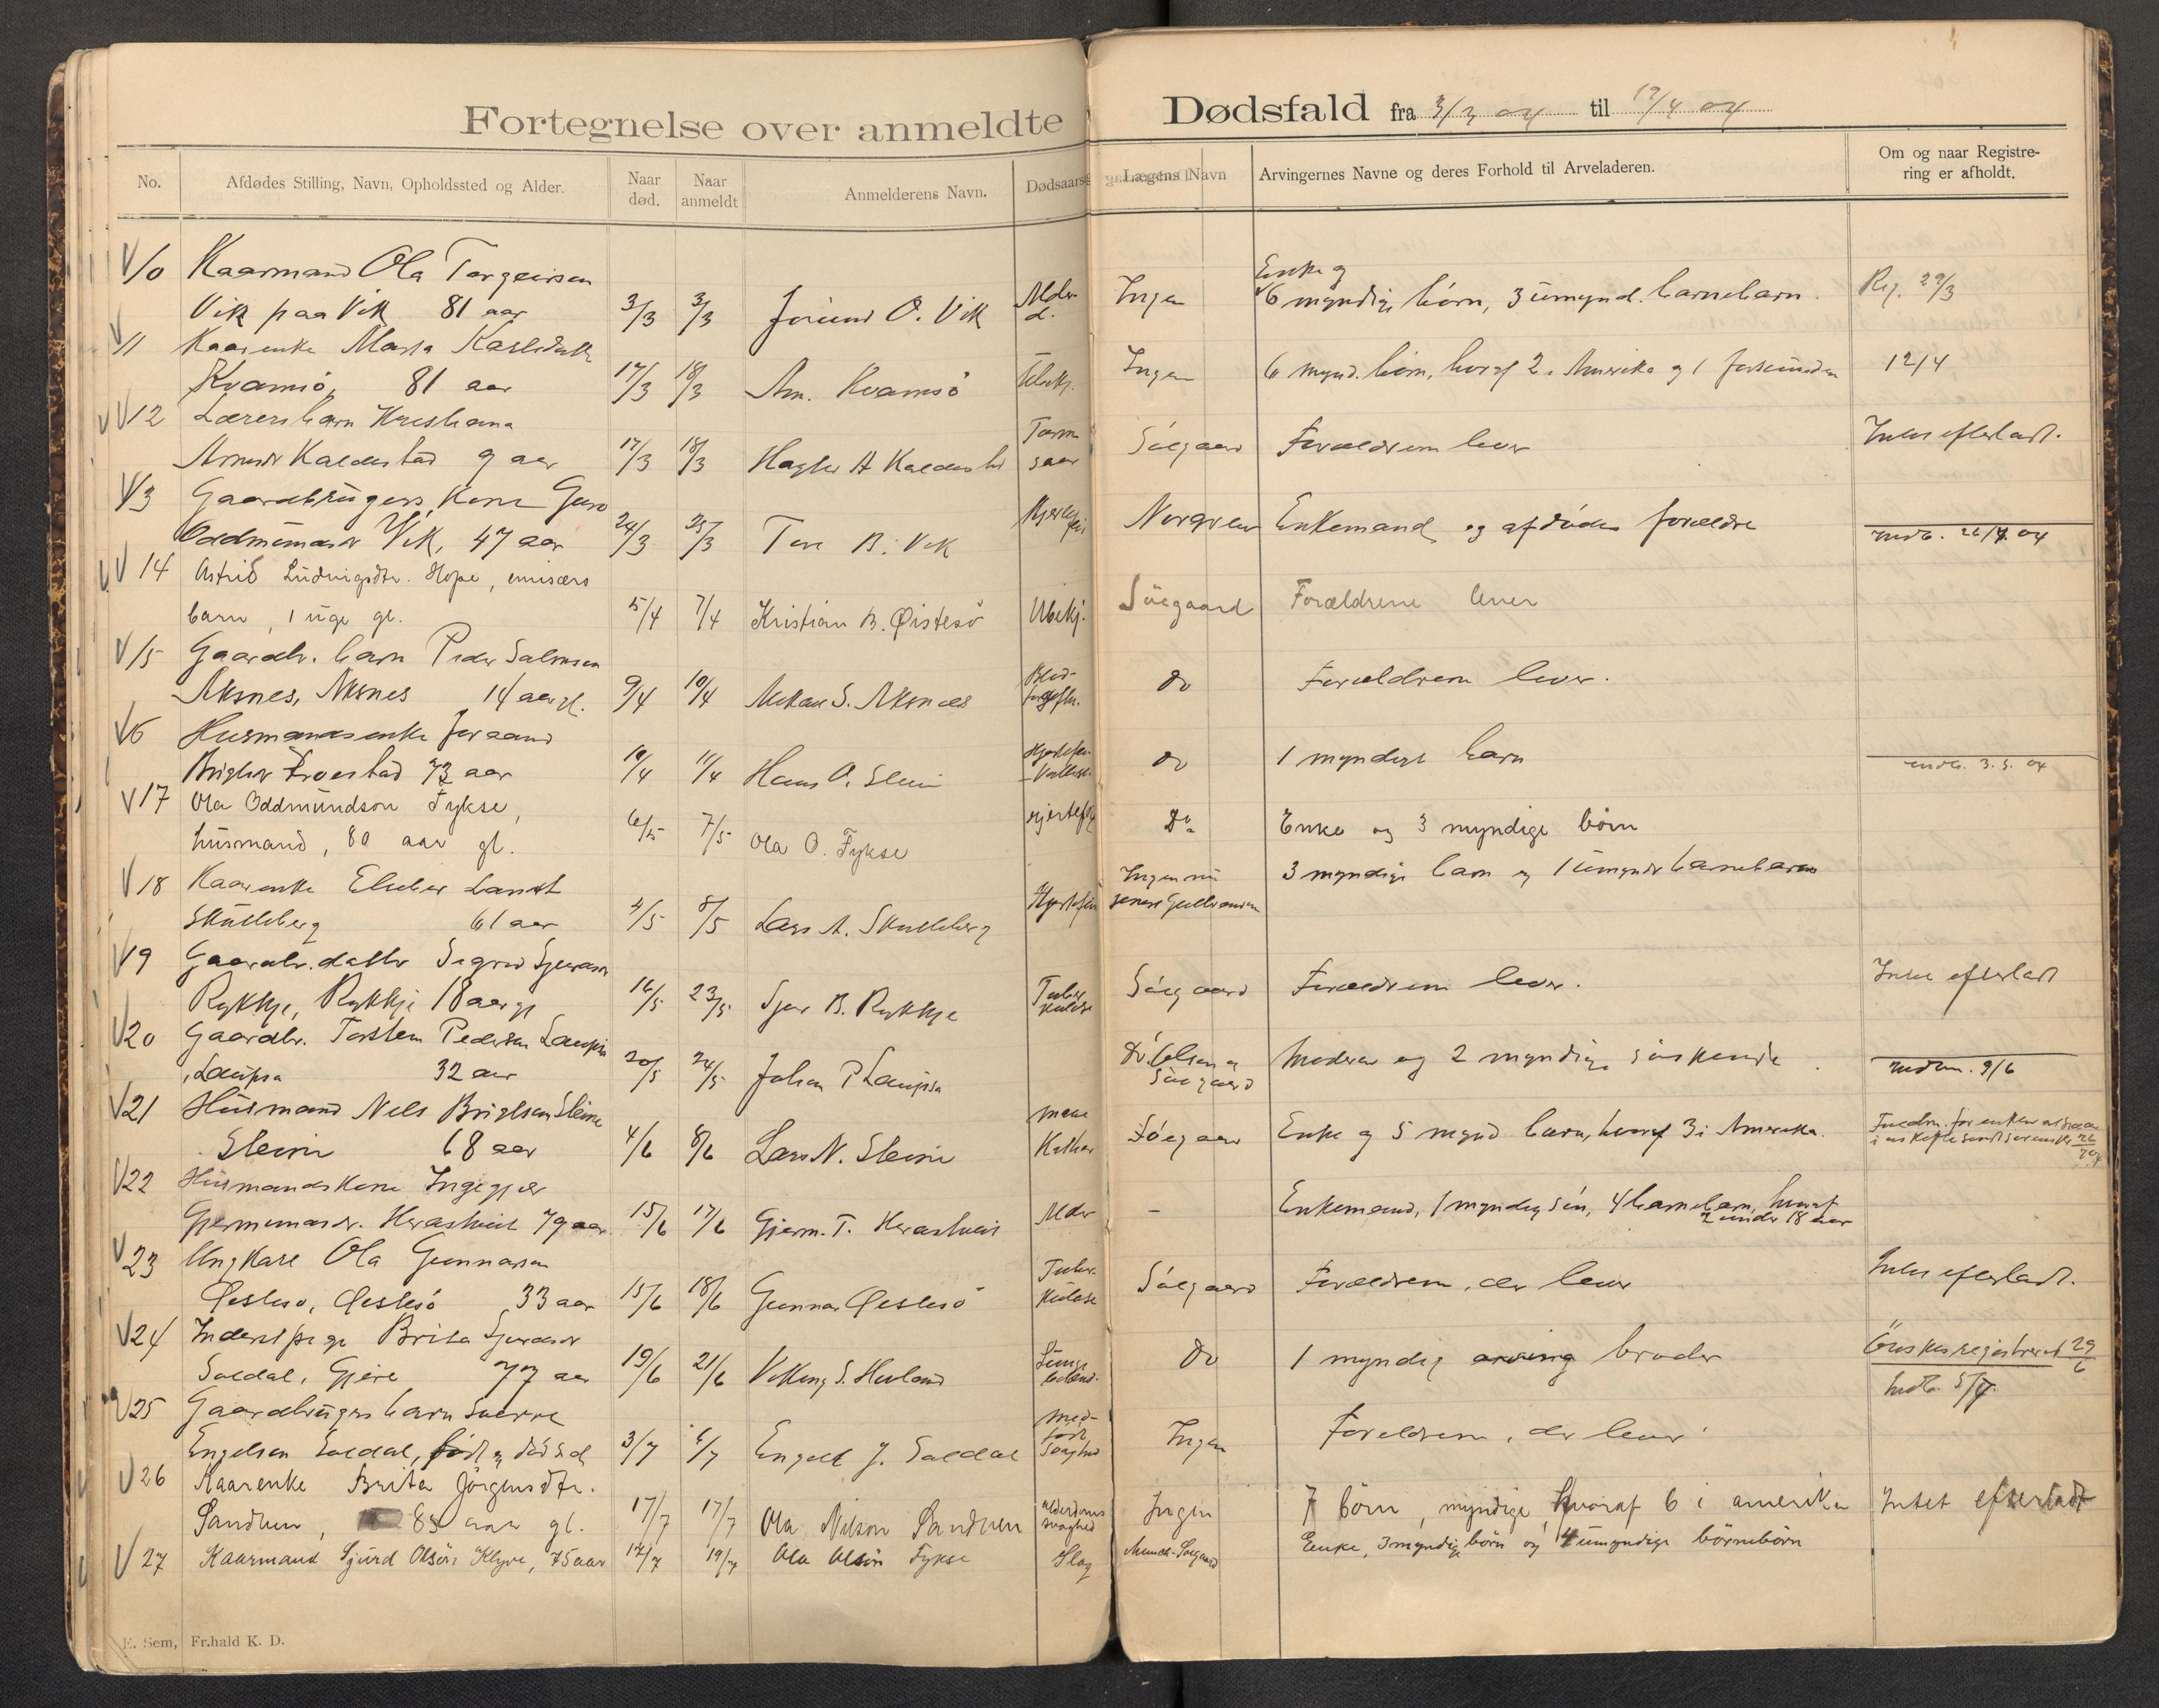 Fortegnelse over anmeldte Dødsfald fra 3/3 04 til 19/7 04
No. Afdødes Stilling, Navn, Opholdssted og Alder. Naar død. Naar anmeldt Anmelderens Navn. Dødsaars Lægens Navn Arvingernes Navne og deres Forhold til Arveladeren. Om og naar Registrering er afholdt.
10 Kaarmand Ola Torgeirsen Enke og
Vik paa Vik 81 aar 3/3 3/3 Jorund O. Vik Alder d. Ingen 6 myndige børn, 3 umynd. barnebarn. Reg. 29/3
11 Kaarenke Marta
Kvamsö, 81 aar 17/3 18/3 Am. Kvamsö Ingen 6 mynd. börn, horaf 2 i Amerika og 1 12/4
12 Lærers barn
Kaldestad 9 aar 17/3 18/3 A Kaldestad Søegaard Forældrene lever Intet efterladt.
13 Gaardbrugers Kone Guro
Oddmundsdr Vik, 47 aar 24/3 25/3 Tore B. Vik Norgren Enkemand og afdødes forældre Indb. 26/4. 04
14 Astrid Ludvigsdtr. Hope, emisærs
barn, 1 uge gl. 5/4 7/4 Kristian B. Øistesö Ubekj. Söegaard Forældrene lever
15 Gaardb. barn Peder Salmsen
Aksnes, Aksnes 14 aar gl. 9/4 10/4 S. Aksnes Blodforgiftn. do Forældrene lever.
16 Husmandsenke
73 aar 10/4 11/4 Hans O. Stein do 1 myndigt barn Indb. 3.5. 04
17 Ola Oddmundson Fykse,
husmand, 80 aar gl. 6/5 7/5 Ola O. Fykse Hjertefejl Do Enke og 3 myndige börn
18 Kaarenke Larsdt Ingen nu 3 myndige barn og 1 umyndr barnebarn
Skutleberg 61 aar 4/5 8/5 Lars A. Skutleberg senest Gulbransen
19 Gaardbr. datter Sigrid Sjursdr
Rykkje, Rykkje 18 aar gl 16/5 23/5 Sjur B. Rykkje Tuberkulose Söegaard Forældrene lever. Intet efterladt
20 Gaardbr. Torstein Pedersen Laupsa
, Laupsa 32 aar 20/5 24/5 Johan P Laupsa Dr. Olsen og Söegaard Moderen og 2 myndige söskende Indb. 9/6
21 Husmand Nels Brigtsen Steine
Steine 68 aar 4/6 8/6 Lars N. Steine Mave Kathar Söegaard Enke og 5 mynd barn, horaf 3 i Amerika.
22 Husmandskone Ingegjer
79 aar 15/6 17/6 Gjerm. T. Alder - Enkemand, 1 myndig sön, 4 barnebarn, hvoraf 2 under 18 aar
23 Ungkarl Ola Gunnarsen
Øistesö, Øistesö 33 aar 15/6 18/6 Gunnar Øistesö Tuberkulose Söegaard Forældrene, der lever Intet efterladt.
24 Inderstpige Brita Sjursdr
Soldal, Gjere 77 aar 19/6 21/6 Viking S. do 1 myndig arving broder Önskes registreret 29/6
25 Gaardbrugers barn Sverre Indb. 5/7.
Engelsen Soldal, född og död s.d 3/7 6/7 Engelt J. Soldal Medfödt svaghed Ingen Foreldrene, der lever
26 Kaarenke Brita Jörgensdtr.
Sandven, 85 aar gl. 17/7 17/7 Ola Nilson Sandven Alderdomssvaghed Ingen 7 börn, myndige, hvoraf 6 i amerika Intet efterladt
27 Kaarmand Sjurd Olsön Klyve, 75 aar 17/7 19/7 Ola Olsön Fykse Slag Munch-Söegaard Enke, 3 myndige börn og 4 umyndige börnebörn
E. Sem, Fr.hald K. D.